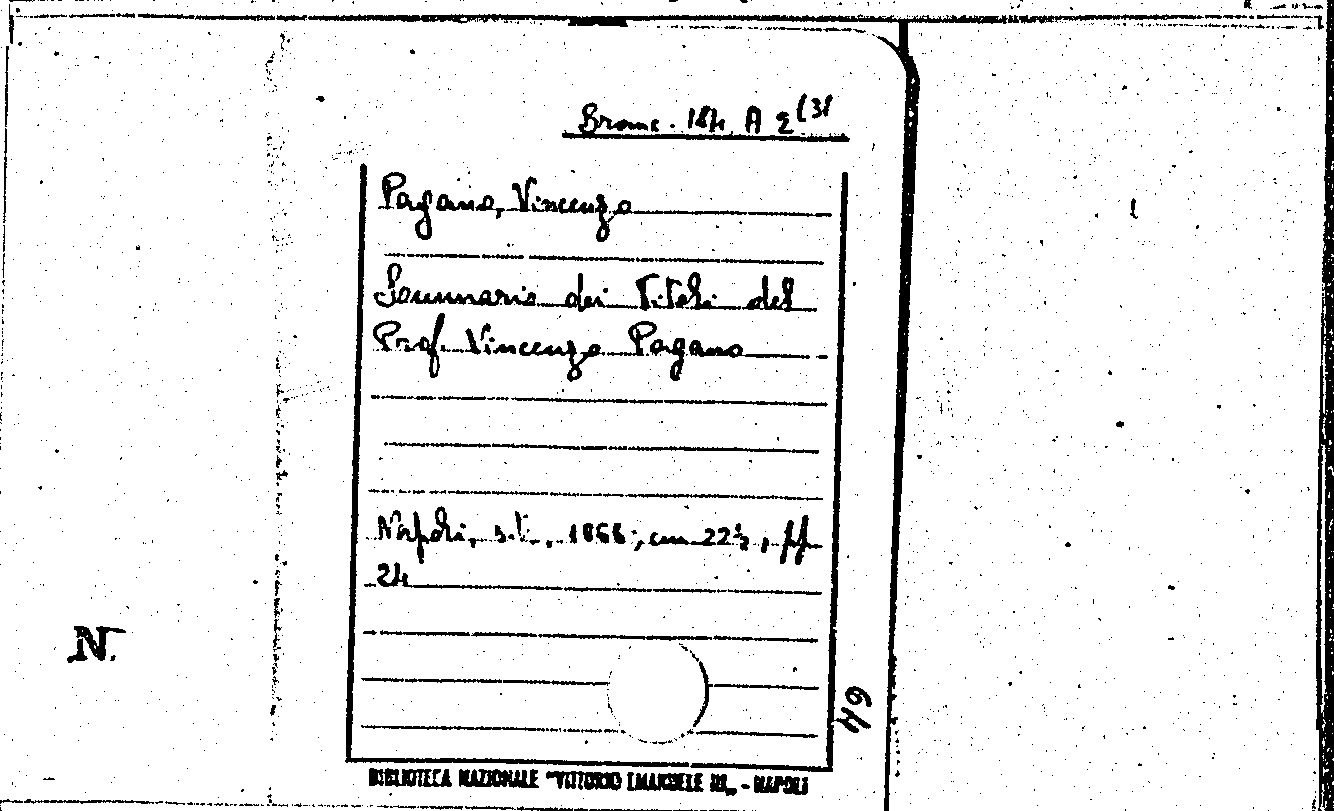 Branc. 184 A 2 (3)
Pagano, Vincenzo
Sommario dei Titoli del
Prof. Vincenzo Pagano
Napoli, s.t., 1868, cm 22½, pp
24
N.
64
BIBLIOTECA NAZIONALE "VITTORIO EMANUELE III" - NAPOLI